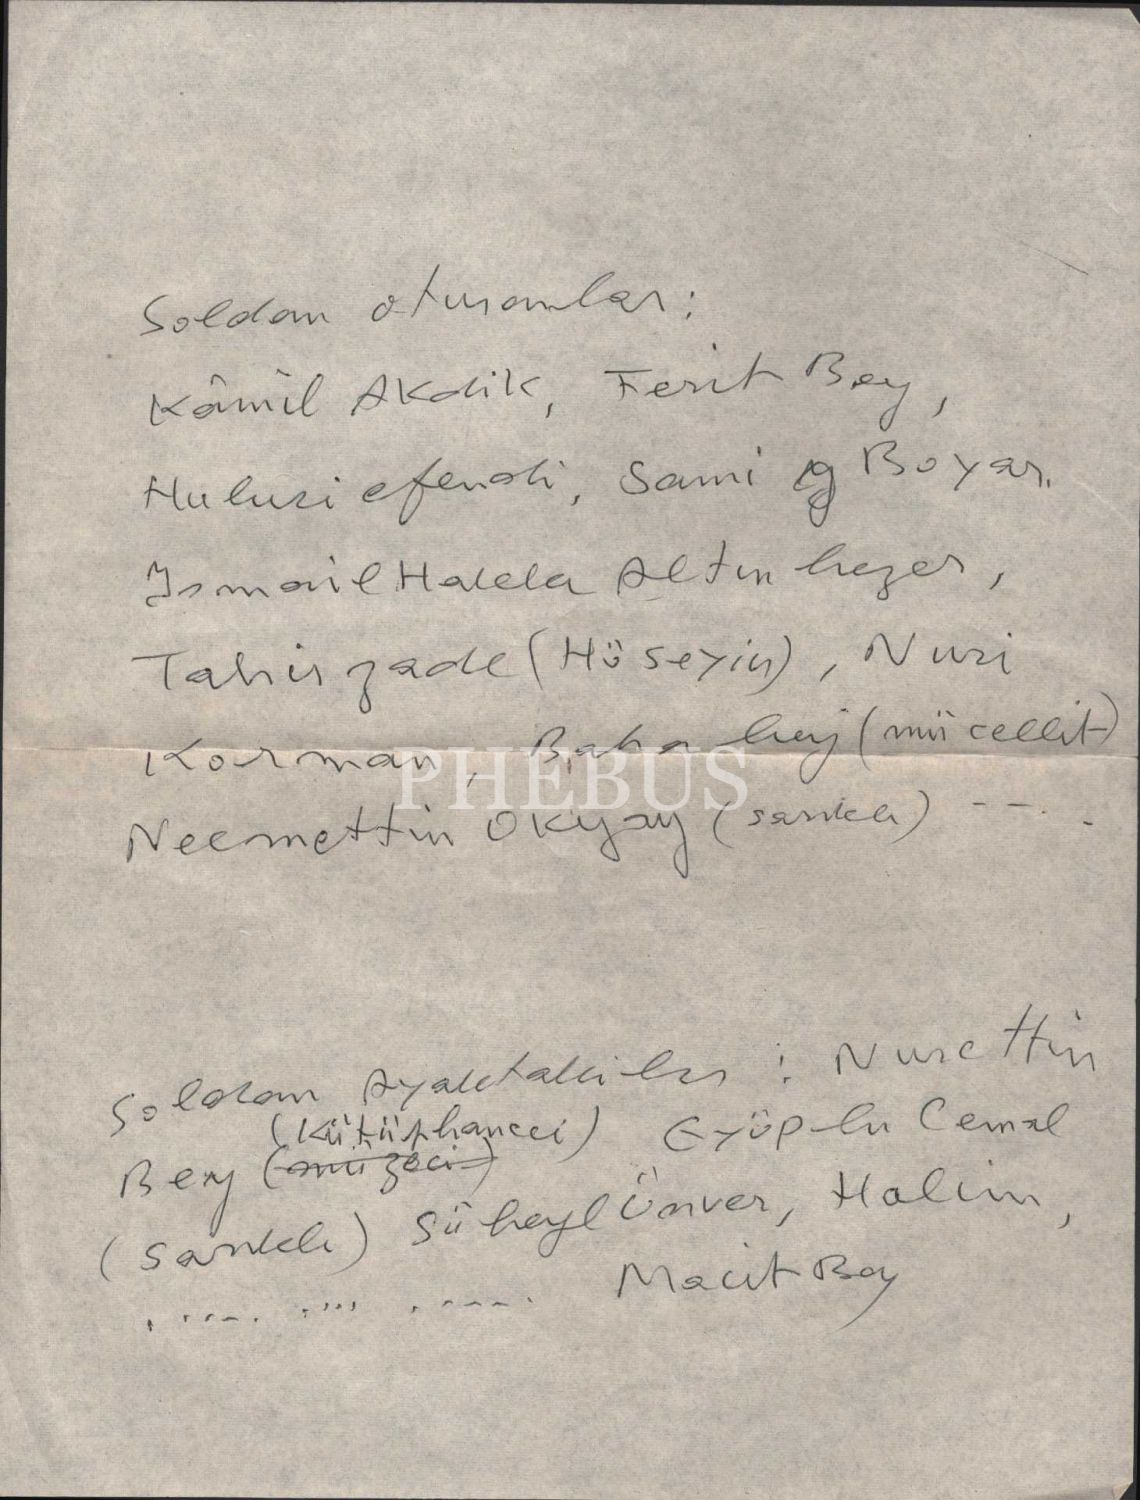 Soldan oturanlar:
Kâmil Akdik, Ferit Bey,
Hulusi efendi, Sami Boyar,
İsmail Hakkı Altınbezer,
Tahirzade (Hüseyin), Nuri
Korman, Baha bey (mücellit)
PHEBUS
Necmettin Okyay (sarıklı) --..
Soldan Ayaktakiler: Nurettin
(Kütüphaneci)
Bey (müzeci) Eyüplu Cemal
(sarıklı) Süheyl Ünver, Halim,
..... .... ..... Macit Bey